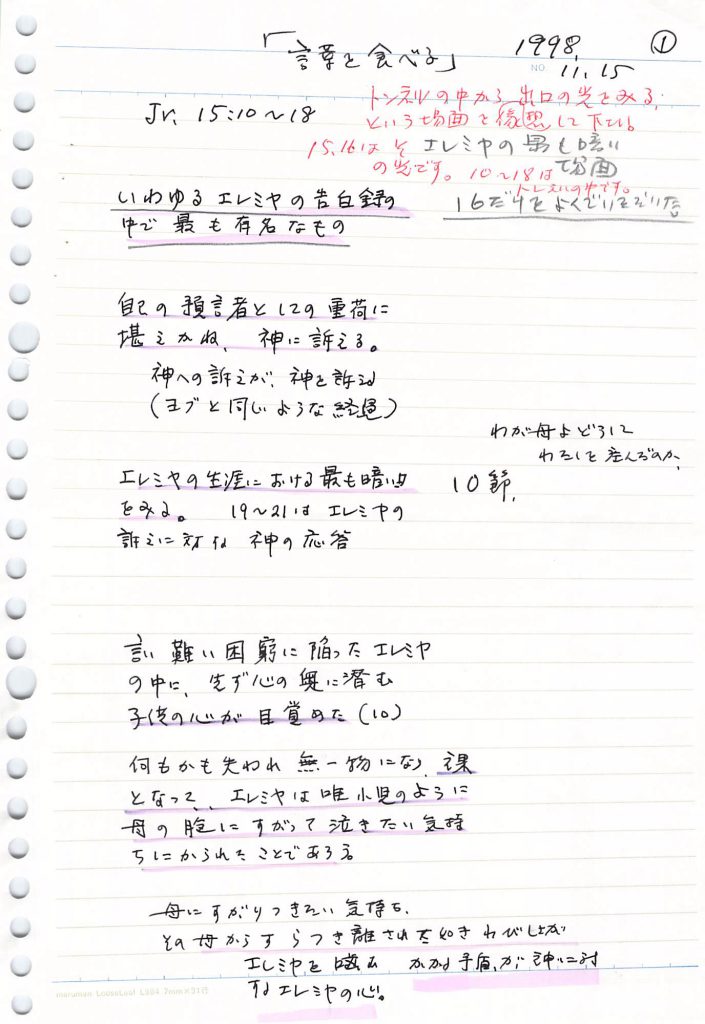 「言葉を食べる」
1998.
11.15
①
NO.
Jr. 15:10～18
トンネルの中から出口の光をみる、
という場面を 想して下さい。
15,16はそ
の光です。10～18は
トンネルの中です。
エレミヤの最も暗い
場面
16だけを
いわゆるエレミヤの告白録の
中で最も有名なもの
自己の預言者としての重荷に
堪えかね、神に訴える。
神への訴えが、神を訴る
(ヨブと同じような経過)
わが母よどうして
わたしを産んだのか、
10節、
エレミヤの生涯における最も暗い点
をみる。 19～21はエレミヤの
訴えに対する 神の応答
言い難い困窮に陥ったエレミヤ
の中に、先ず心の奥に潜む
子供の心が目覚めた(10)
何もかも失われ無一物になり、裸
となって、エレミヤは唯小児のように
母の胸にすがって泣きたい気持
ちにかられたことであろう
母にすがりつきたい気持ち、
その母からすらつき離された如きわびしさが
エレミヤを噛む かかる矛盾、が神に対
するエレミヤの心。
maruman LooseLeaf L304 7mm×31行